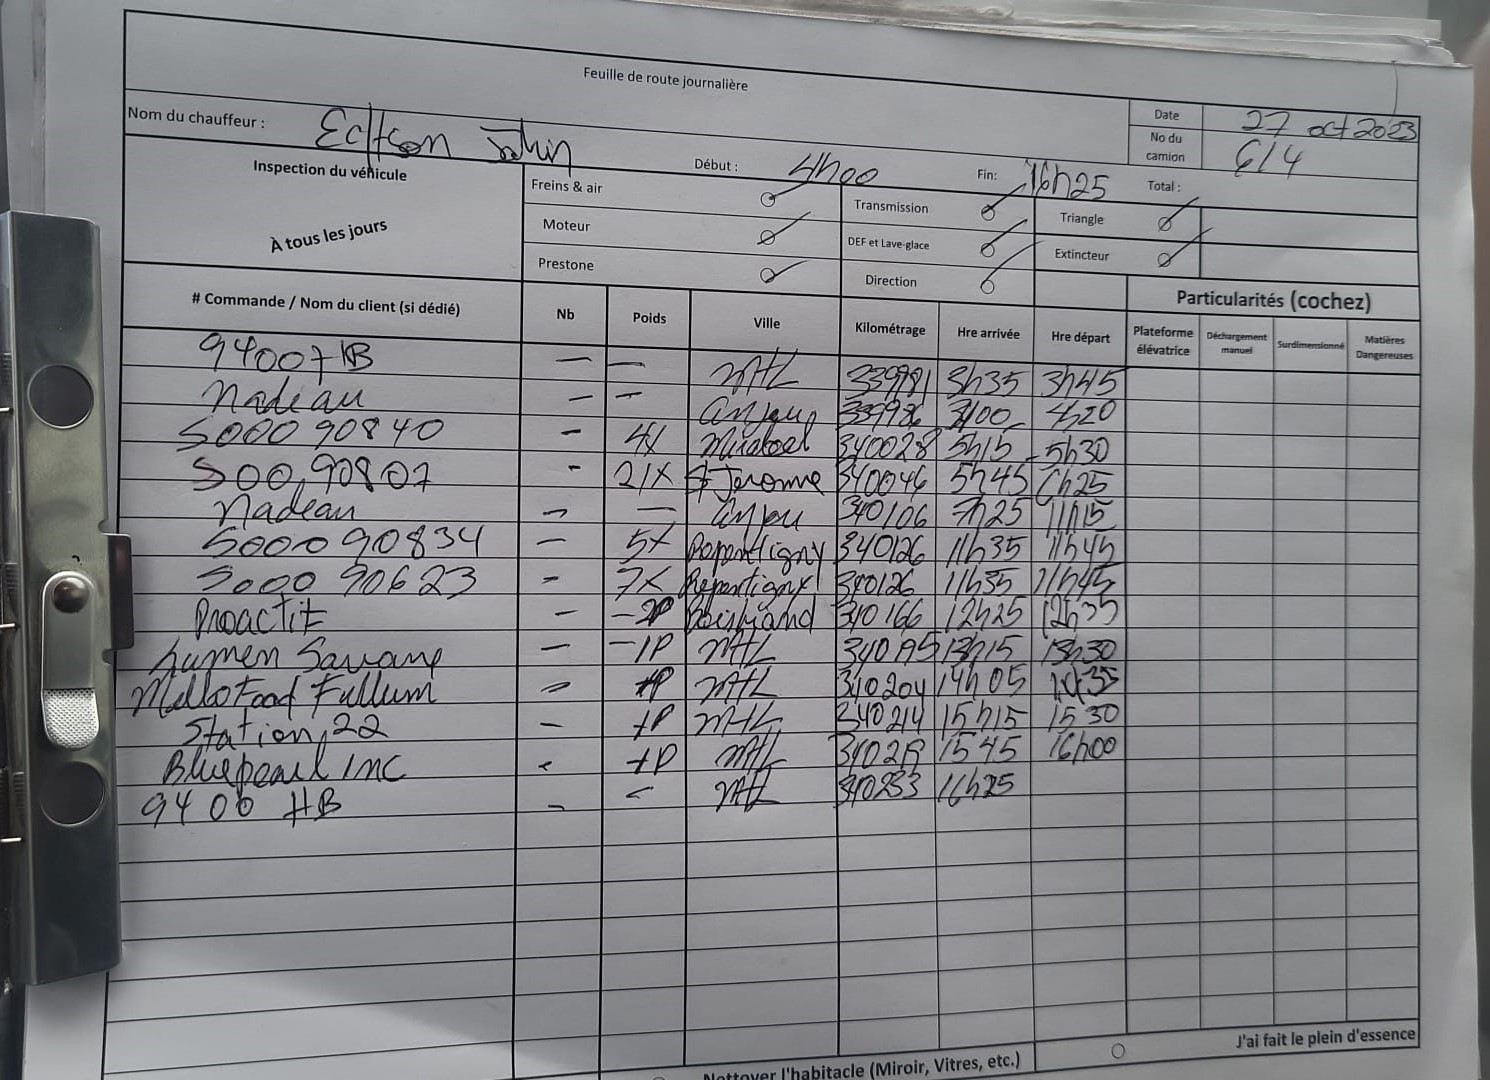 Feuille de route journalière
Nom du chauffeur : Date 27 oct 2023
No du camion 614
Inspection du véhicule Début : 4h00 Fin: 16h25 Total :
À tous les jours
Freins & air Transmission Triangle
Moteur DEF et Lave-glace Extincteur
Prestone Direction
# Commande / Nom du client (si dédié) Nb Poids Ville Kilométrage Hre arrivée Hre départ Particularités (cochez)
Plateforme élévatrice Déchargement manuel Surdimensionné Matières Dangereuses
— — Mtl 339981 3h35 3h45
Nadeau — — Anjou 339986 4h20
500090840 — 4x Mirabel 340028 5h15 5h30
50090807 - 21x St Jerome 340046 5h45 6h25
Nadeau — — Anjou 340106 7h25 11h15
500090834 — 5x 340126 11h35 11h45
500090623 - 7x Repentigny 340126 11h35 11h45
Proactif — 340166 12h25 12h35
Lumen — -1P Mtl 13h15 13h30
Fullum Mtl 340204 14h05 14h35
Station 22 — +P Mtl 340214 15h15 15 30
Bluepearl INC - +P Mtl 15 45 16h00
9400 HB — - Mtl 340233 16h25
Nettoyer l'habitacle (Miroir, Vitres, etc.) J'ai fait le plein d'essence